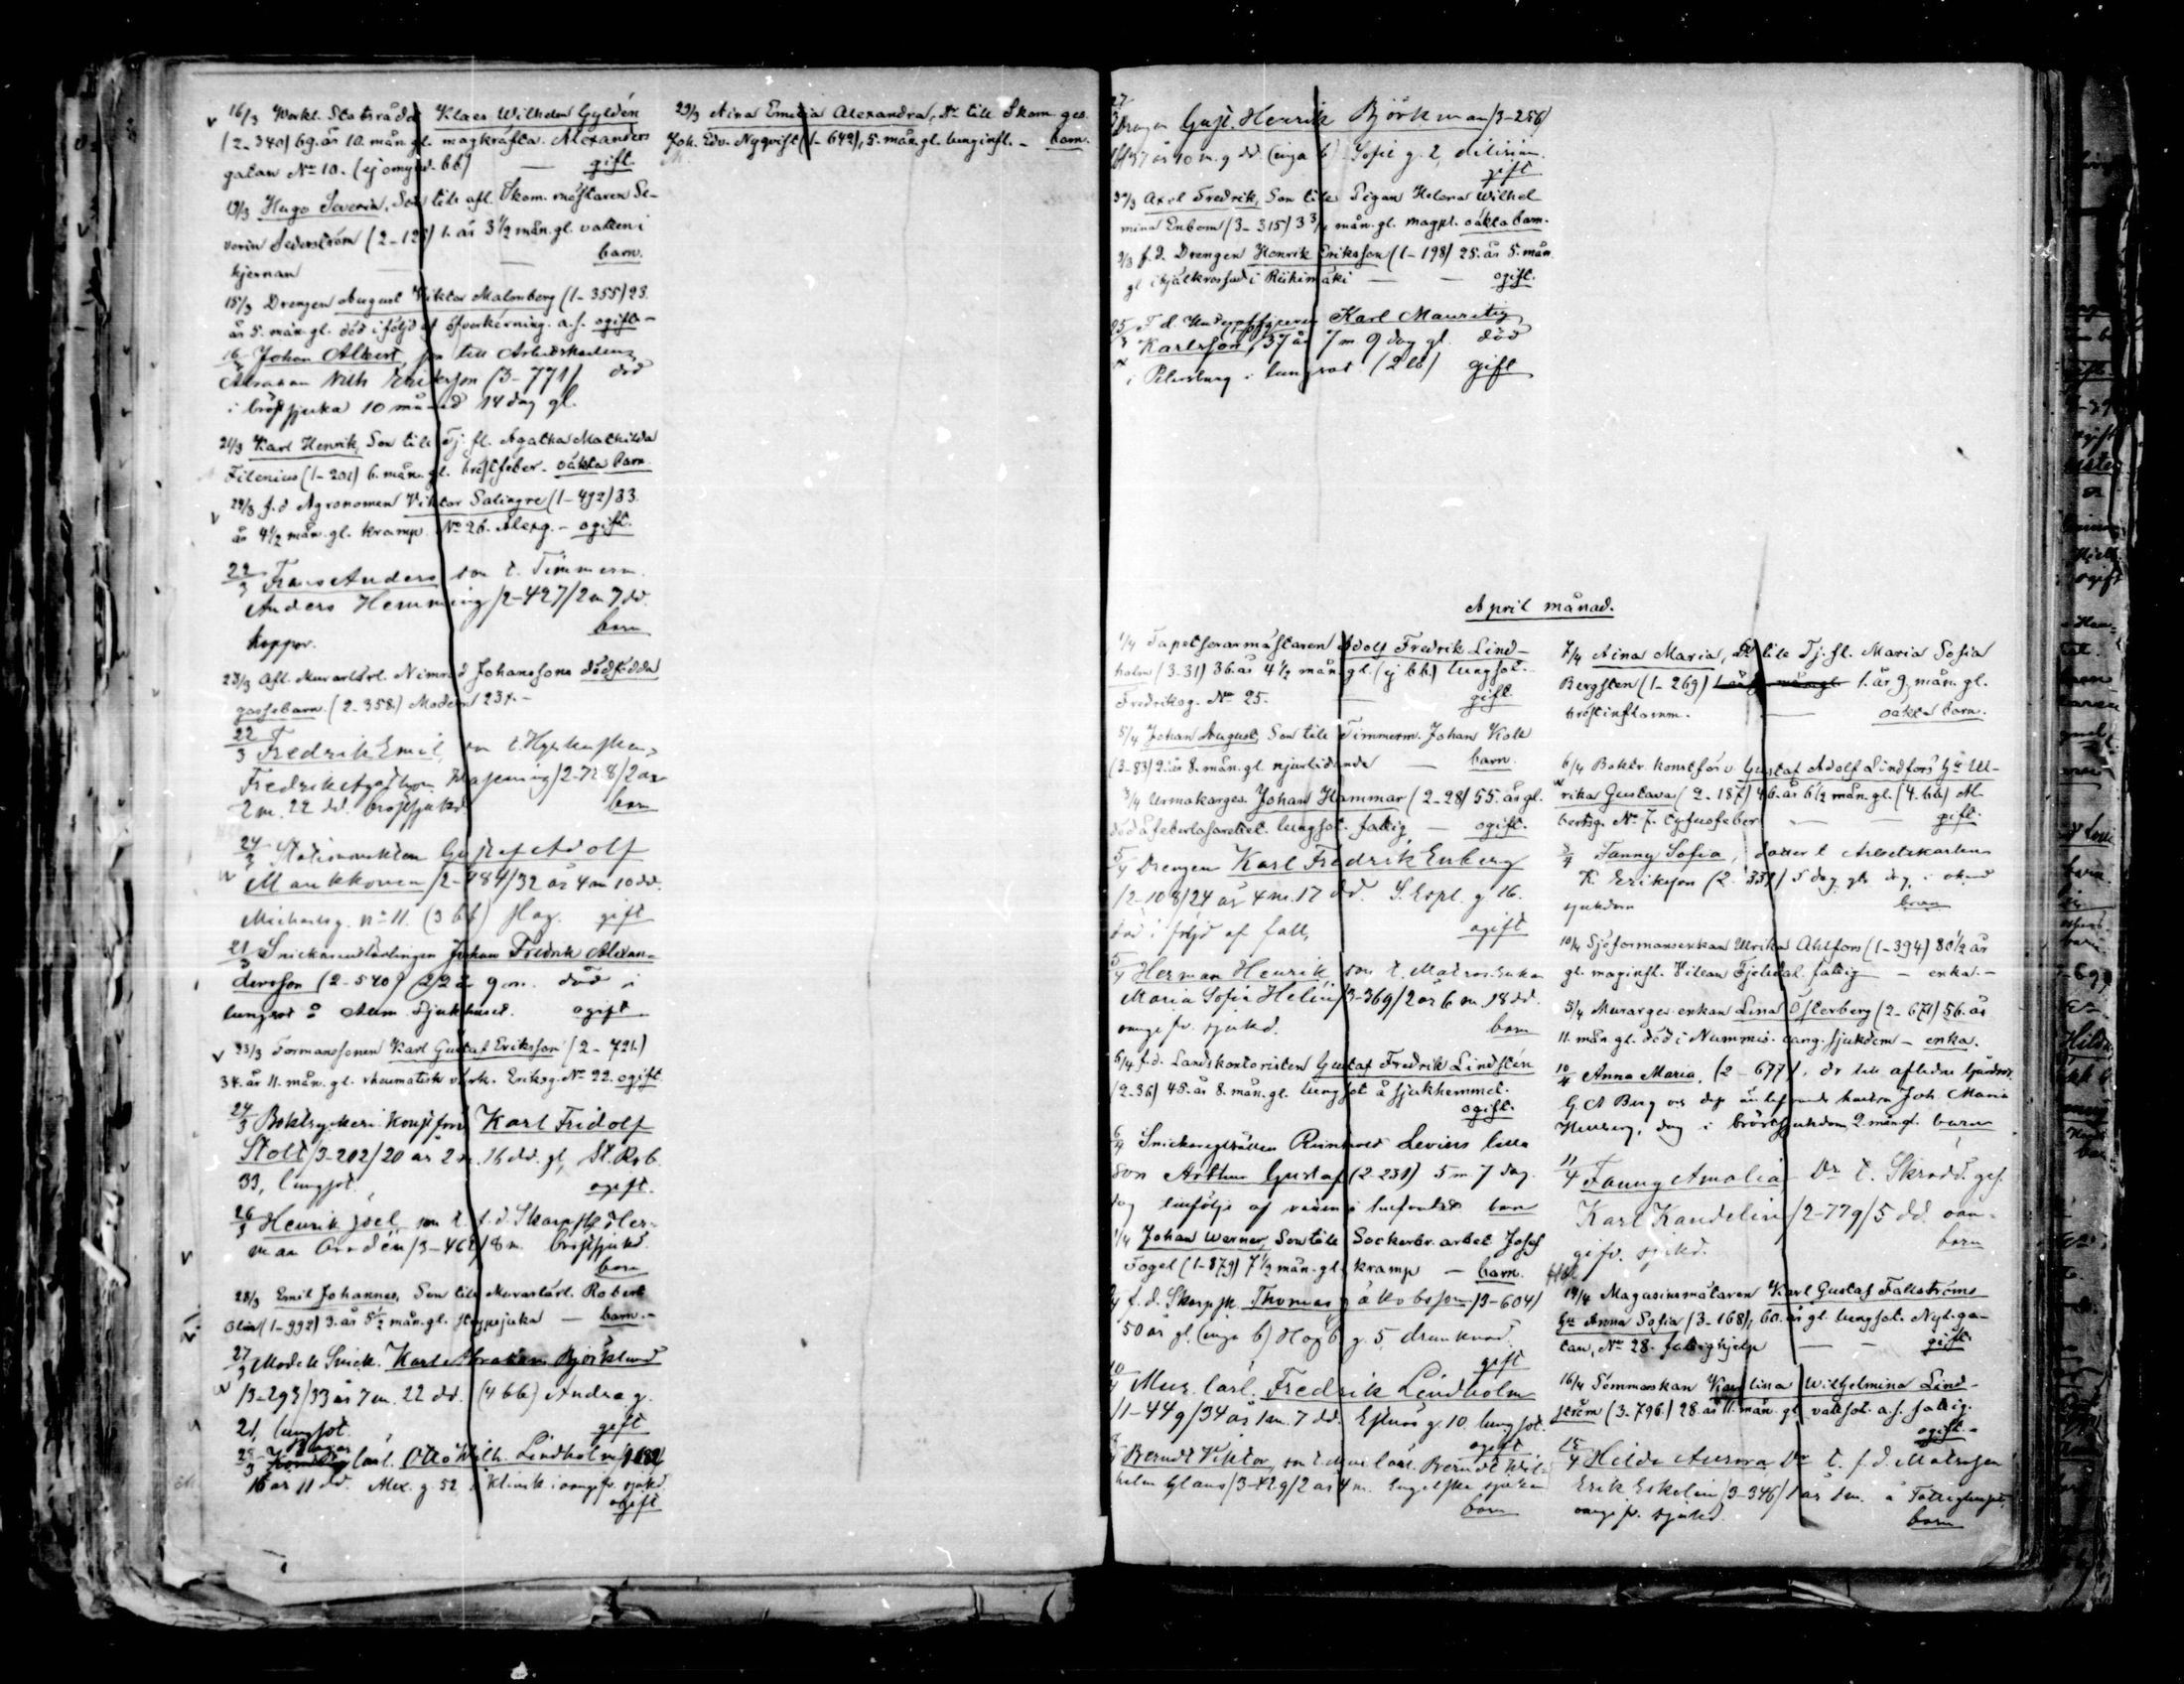 16/3 Verkl. Statsrådet Klaes Wilhelm Gyldén
(2-340) 69. år 10. mån. gl. magkräfta. Alexanders
gatan No 10. (ej omgw. bb) — gift.
19/3 Hugo Severin, Son till afl. Skom. mästaren Se-
verin Sederström (2-128) 1. år 3 1/2 mån. gl. vatten i
hjernan — — barn.
15/3 Drengen August Viktor Malmberg (1-355) 23.
år 5. mån. gl. död i följd af öfverkörning. a.s. ogift -
16/3 Johan Albert, son till Arbetskarlen
Abraham Nils Erikson (3-771) död
i bröstsjuka 10 månad 14 dag gl.
21/3 Karl Henrik, Son till Tj. fl. Agatha Mathilda
Filenius (1-201) 6. mån. gl. bröstfeber - oäkta barn.
29/3 f.d Agronomen Viktor Salingre (1-492) 33.
år 4 1/2 mån. gl. kramp. No 26. Alexg. - ogift.
22/3 Frans Anders son t. Timmerm.
Anders Hemming /2-427/ 2 m 7 dd.
koppor. barn
23/3 Afl. Murarlärl. Nimrod Johanssons dödfödda
gossebarn. (2-358.) Modern 23 -
22/3 Fredrik Emil, son t. Hyrkusken
Fredrik /2-728/ 2 år
2 m. 22 dd. bröstsjukd. barn
24/3 Gustaf Adolf
Maukkonen /2-484/ 32 år 4 m 10 dd.
Michaelsg. no 11. (3 bb) slag. gift
21/3 Snickareulärlingen Johan Fredrik Alexan-
dersson (2-540) 22 år 9 m. död i
lungsot å Allm. Sjukhuset. ogift
23/3 Formanssonen Karl Gustaf Eriksson (2-721.)
34. år 11. mån. gl. rheumatisk värk. Eriksg. No 22. ogift
24/3 Boktryckeri Konstförv. Karl Fridolf
Stolt /3-202/ 20 år 2 m. 16 dd. gl, St. Rob.
33, lungsot. ogift.
26/3 Henrik Joel, son t. f.d. Skarpsk. Her-
man /3-462/ 8 m. bröstsjukd.
barn
28/3 Emil Johannes, Son till Murarlärl. Robert
Olin (1-992) 3. år 5 1/2 mån. gl. strypsjuka — barn. -
27/3 Modell Snick. Karl Abraham Björklund
/3-293/ 33 år 7 m. 22 dd. (4 bb) Andreæ g.
21, lungsot. gift
28/3 lärl. Otto Wilh. Lindholm
16 år 11 dd. Alex. g. 52 å Klinik i oangifv. sjukd.
ogift
29/3 Aina Emilia Alexandra, Dr till Skom. ges.
Joh. Edv. Nyqvist (1-642), 5. mån. gl. lunginfl. - barn.
27/3 Drengen Gust. Henrik Björkman /3-256/
37 år 10 m. 9 dd. (inga b) Sofie g. 2, delirium.
gift
30/3 Axel Fredrik, Son till Pigan Helena Wilhel
mina Enbom (3-315) 3 3/4 mån. gl. magpl. oäkta barn.
9/3 f.d. Drengen Henrik Eriksson (1-198) 25. år 5. mån.
gl ihjälkrossad i Riihimäki — — ogift.
25/3 F d. Underofficeren Karl Mauritz
Karlsson, 37 år 7 m 9 dag gl. död
i Petersburg i lungsot (2 bb) gift
April månad.
1/4 Tapetserarmästaren Adolf Fredrik Lind-
holm (3-31) 36. år 4 1/2 mån. gl. (ej bb.) lungsot.
Fredriksg. No 25. — gift.
5/4 Johan August, Son till Timmerm. Johan Koll
(3-83) 2. år 8. mån. gl. njurlidande — barn.
3/4 Urmakarges. Johan Hammar (2-28) 55. år gl.
död å feberlasarettet. lungsot. fattig. — ogift.
5/4 Drengen Karl Fredrik Enberg
/2-108/ 24 år 4 m. 17 dd. S. Espl. g. 16.
död i följd af fall, ogift
5/4 Herman Henrik, son t. Matros enkan
Maria Sofia Helin /3-369/ 2 år 6 m. 18 dd.
oangifv. sjukd. barn
6/4 f.d. Landskontoristen Gustaf Fredrik Lindstén
(2-36) 45. år 8. mån. gl. lungsot å sjukhemmet.
ogift.
6/4 Snickaregesällen Reinhold Levins lilla
son Arthur Gustaf (2-231) 5 m 7 dag
dog till följe af barn
1/4 Johan Werner, Son till Sockerbr. arbet. Josef
Fogel (1-879) 7 1/2 mån. gl. kramp — barn.
9/4 f.d. Skarpsk. Thomas Jakobsson /3-604/
50 år gl. (inga b) Högb. g. 5, drunknad.
gift
10/4 Mur. lärl. Fredrik Lindholm
/1-449/ 34 år 1 m. 7 dd. Elsnäs g. 10. lungsot.
ogift
Berndt Viktor, son t. Mur. lärl. Berndt Wil-
helm Glans /3-429/ 2 år 4 m. Engelska sjukan
barn
7/4 Aina Maria, Dr till Tj. fl. Maria Sofia
Bergsten (1-269) 1. år 9. mån. gl.
bröstinflamm. — oäkta barn.
6/4 Boktr. konstförv. Gustaf Adolf Lindfors hu Ul-
rika Gustava (2-187) 46. år 6 1/2 mån. gl. (4. bb) Al-
bertsg. No 7. tyfusfeber — — gift.
8/4 Fanny Sofia, dotter t Arbetskarlen
K. Erikson (2-337) 5 dag gl dog i okänd
sjukdom barn
10/4 Sjöformansenkan Ulrika Ahlfors (1-394) 80 1/2 år
gl. maginfl. Villan Fjeldal. fattig — enka. -
5/4 Murarges. enkan Lina Österberg (2-671) 56. år
11. mån. gl. död i Nummis. oang. sjukdom - enka.
10/4 Anna Maria, (2-677), dr till aflidne
G. A Berg Joh. Maria
dog i bröstsjukdom 2 mån gl. barn
11/4 Fanny Amalia, Dr t. Skrädd. ges.
Karl Kandelin /2-779/ 5 dd. oan-
gifv. sjukd. barn
14/4 Magasinsmätaren Karl Gustaf Fallströms
hu Anna Sofia (3-168), 60. år gl. lungsot. Nyl. ga-
tan, No 28. fattighjelp — — gift.
16/4 Sömmerskan Karolina Wilhelmina Lind-
ström (3-796.) 28. år 11. mån. gl. vattsot. a.s. fattig.
ogift. -
15/4 Hilda Aurora Dr t. f.d. Matrosen
Erik Eskelin /3-346/ 1 år 1 m. å
oangifv. sjukd. barn